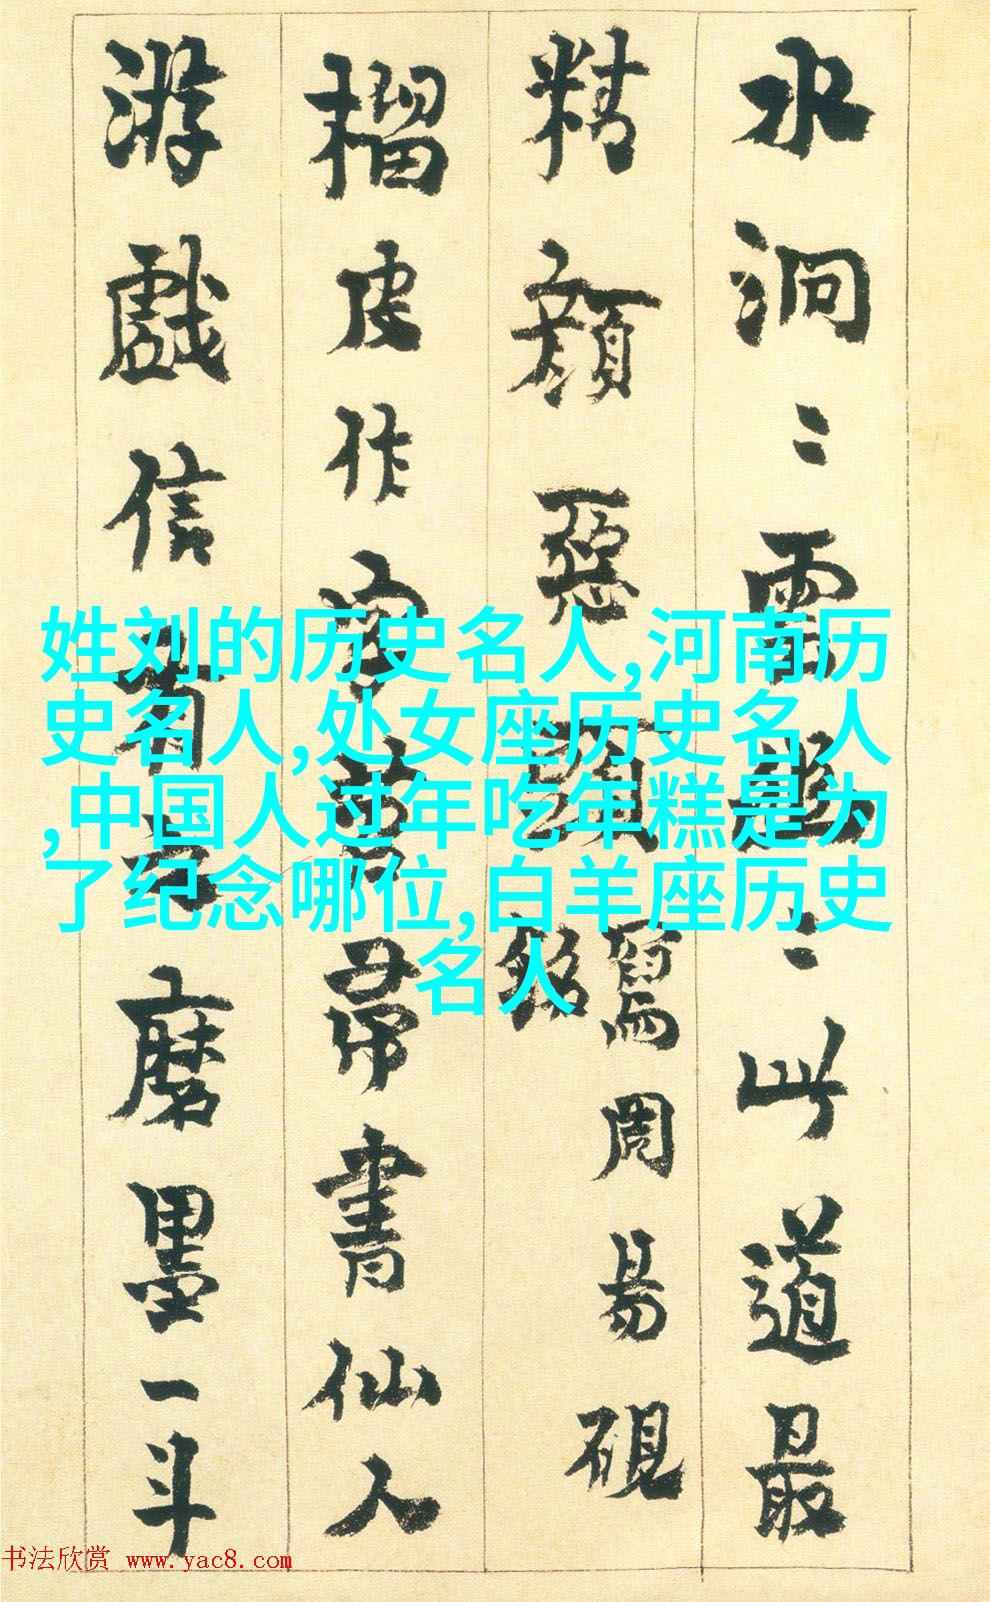 水洞〻雷賜〻此道最
精顏惡頭
銘
寫周易硯
榴皮作字苕帚書仙人
游戲信有
磨墨一斗
姓刘的历史名人,河南历
史名人,处女座历史名人
,中国人过年吃年糕是为
了纪念哪位,白羊座历史
名人
书法欣赏 www.yac8.com